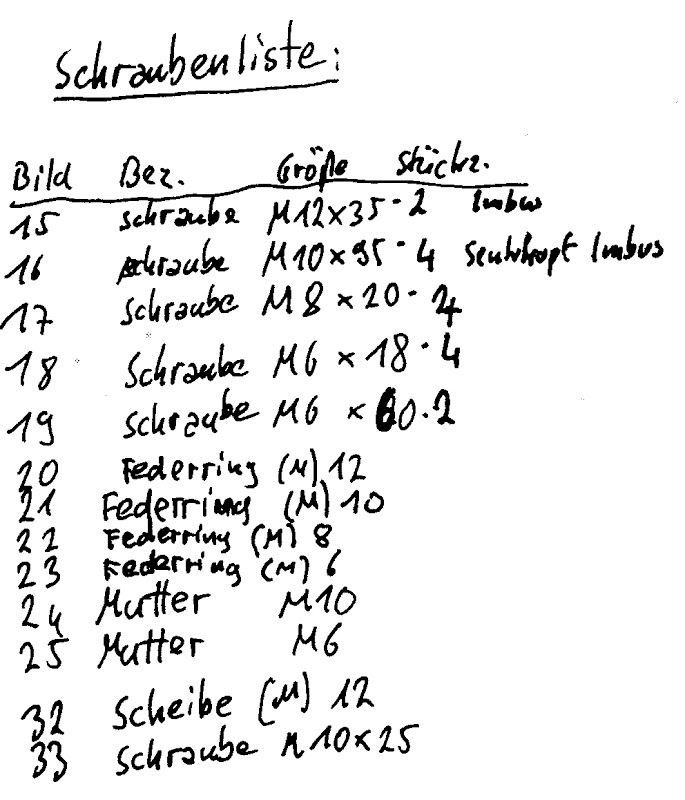 Schraubenliste:
Bild Bez. Größe Stückz.
15 Schraube M12x35 - 2 Imbus
16 Schraube M10x95 - 4 Senkkopf Imbus
17 Schraube M8 x 20 - 4
18 Schraube M6 x 18 - 4
19 Schraube M6 x 60 . 2
20 Federring (M) 12
21 Federring (M) 10
22 Federring (M) 8
23 Federring (M) 6
24 Mutter M10
25 Mutter M6
32 Scheibe (M) 12
33 Schraube M10x25